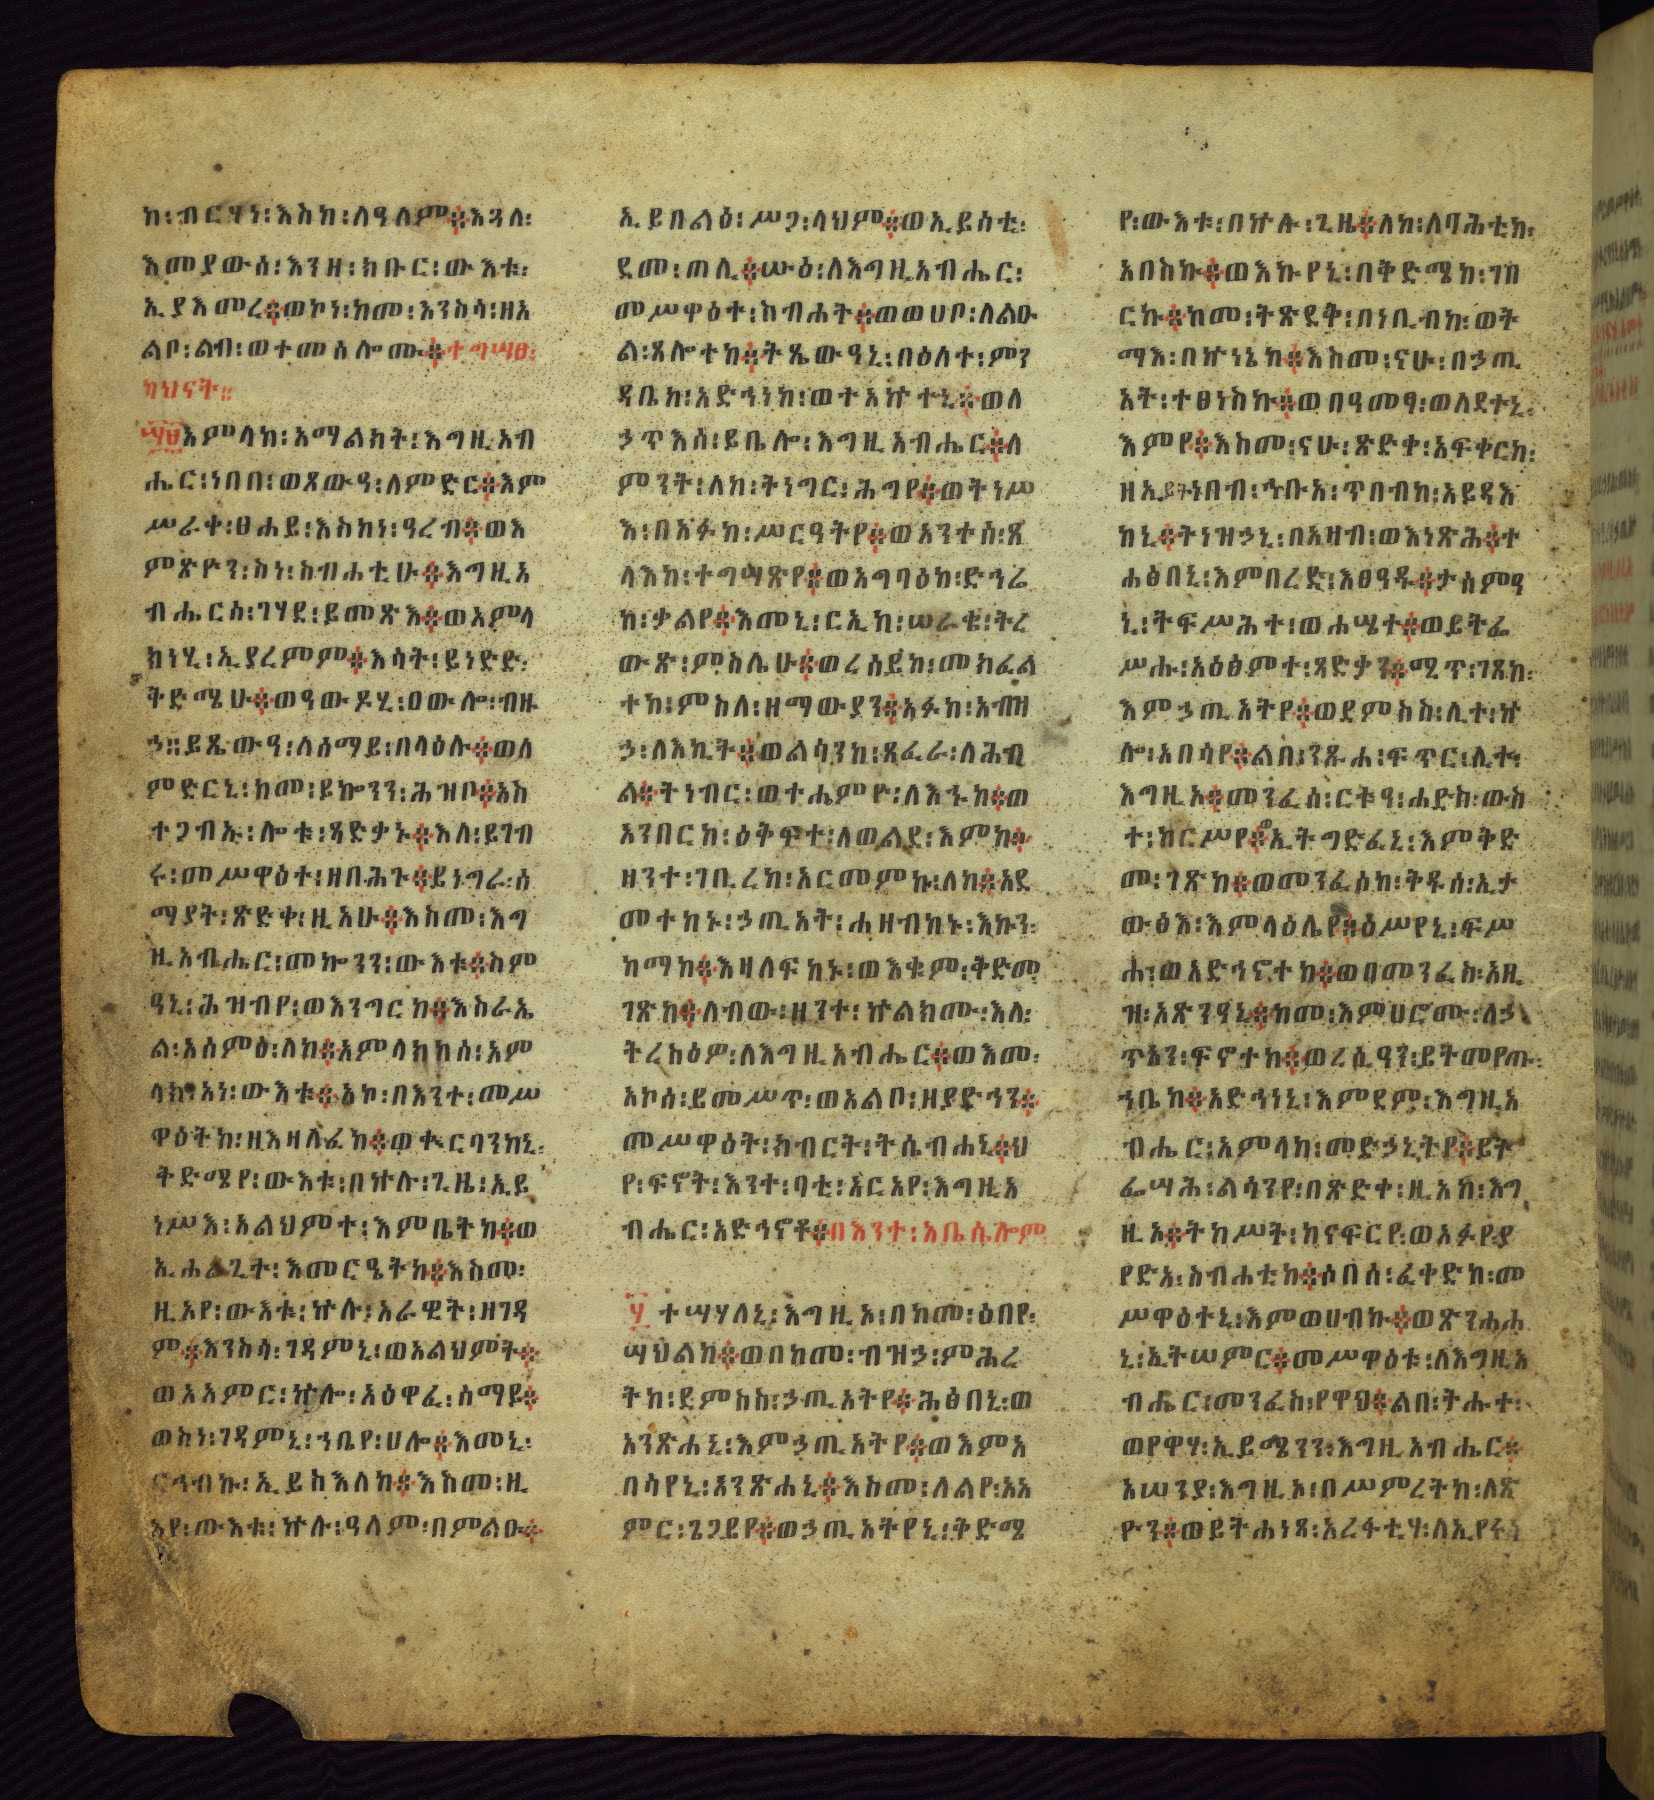 ከ፡ብርሃነ፡እስከ፡ለዓለም፨እጓለ፡
እመያውሰ፡እንዘ፡ክቡር፡ውእቱ፡
ኢያእመረ፨ወኮነ፡ከመ፡እንስሳ፡ዘአ
ልቦ፡ልብ፡ወተመሰሎሙ፨ተግሣፀ፡
ካህናት።
እምላከ፡አማልክት፡እግዚአብ
ሔር፡ነበበ፡ወጸውዓ፡ለምድር፨እም
ሥራቀ፡ፀሐይ፡እስከነ፡ዓረብ፨ወእ
ምጽዮን፡ስነ፡ስብሐቲሁ፨እግዚአ
ብሔርሰ፡ገሃደ፡ይመጽእ፨ወአምላ
ክነሂ፡ኢያረምም፨እሳት፡ይነድድ፡
ቅድሜሁ፨ወዓውዶሂ፡ዐውሎ፡ብዙ
ኃ፡ይጼውዓ፡ለሰማይ፡በላዕሉ፨ወለ
ምድርኒ፡ከመ፡ይኰንን፡ሕዝቦ፨አስ
ተጋብኡ፡ሎቱ፡ጻድቃኑ፨እለ፡ይገብ
ሩ፡መሥዋዕተ፡ዘበሕጉ፨ይነግራ፡ሰ
ማያት፡ጽድቀ፡ዚአሁ፨እስመ፡እግ
ዚአብሔር፡መኰንን፡ውእቱ፨ስም
ዓኒ፡ሕዝብየ፡ወእንግርከ፨እስራኤ
ል፡አሰምዕ፡ለከ፨አምላክከሰ፡አም
ላክ፡አነ፡ውእቱ፨አኮ፡በእንተ፡መሥ
ዋዕትከ፡ዘእዛለፈከ፨ወቊርባንከኒ፡
ቅድሜየ፡ውእቱ፡በኵሉ፡ጊዜ፡ኢይ
ነሥእ፡አልህምተ፡እምቤትከ፨ወ
ኢሐራጊት፡እመርዔትከ፨እስመ፡
ዚአየ፡ውእቱ፡ኵሉ፡አራዊት፡ዘገዳ
ም፨እንስሳ፡ገዳምኒ፡ወአልህምት፨
ወአአምር፡ኵሎ፡አዕዋፈ፡ሰማይ፨
ወስነ፡ገዳምኒ፡ኀቤየ፡ሀሎ፨እመኒ፡
ርኅብኩ፡ኢይስእለከ፨እስመ፡ዚ
አየ፡ውእቱ፡ኵሉ፡ዓለም፡በምልዑ፨
ኢይበልዕ፡ሥጋ፡ላህም፨ወኢይሰቲ፡
ደመ፡ጠሊ፨ሡዕ፡ለእግዚአብሔር፡
መሥዋዕተ፡ስብሐት፨ወወሀቦ፡ለልዑ
ል፡ጸሎተከ፨ትጼውዓኒ፡በዕለተ፡ም
ዳቤከ፡አድኅነከ፡ወተአኵተኒ፨ወለ
ኃጥእሰ፡ይቤሎ፡እግዚአብሔር፨ለ
ምንት፡ለከ፡ትነግር፡ሕግየ፨ወትነሥ
እ፡በአፉከ፡ሥርዓትየ፨ወአንተሰ፡ጸ
ላእከ፡ተግሣጽየ፨ወአግባዕከ፡ድኅሬ
ከ፡ቃልየ፨እመኒ፡ርኢከ፡ሠራቄ፡ትረ
ውጽ፡ምስሌሁ፨ወረሰይከ፡መክፈል
ተከ፡ምስለ፡ዘማውያን፨አፉከ፡አብዝ
ኃ፡ለእኪት፨ወልሳንከ፡ጸፈራ፡ለሕብ
ል፨ትነብር፡ወተሐምዮ፡ለእኁከ፨ወ
አንበርከ፡ዕቅፍተ፡ለወልደ፡እምከ፨
ዘንተ፡ገቢረከ፡አርመምኩ፡ለከ፨አደ
መተከኑ፡ኃጢአት፡ሐዘብከኑ፡እኩን፡
ከማከ፨እዛለፍከኑ፡ወእቁም፡ቅድመ
ገጽከ፨ለብው፡ዘንተ፡ኵልክሙ፡እለ፡
ትረስዕዎ፡ለእግዚአብሔር፨ወእመ፡
አኮሰ፡ይመሥጥ፡ወአልቦ፡ዘያድኅን፨
መሥዋዕት፡ክብርት፡ትሴብሐኒ፨ህ
የ፡ፍኖት፡እንተ፡ባቲ፡አርአየ፡እግዚአ
ብሔር፡አድኅኖቶ፨በእንተ፡አቤሴሎም
ተሣሃለኒ፡እግዚኦ፡በከመ፡ዕበየ፡
ሣህልከ፨ወበከመ፡ብዝኃ፡ምሕረ
ትከ፡ደምስስ፡ኃጢአትየ፨ሕፅበኒ፡ወ
አንጽሐኒ፡እምኃጢአትየ፨ወእምአ
በሳየኒ፡አንጽሐኒ፨እስመ፡ለልየ፡አአ
ምር፡ጌጋይየ፨ወኃጢአትየኒ፡ቅድሜ
የ፡ውእቱ፡በኵሉ፡ጊዜ፨ለከ፡ለባሕቲከ፡
አበስኩ፨ወእኩየኒ፡በቅድሜከ፡ገበ
ርኩ፨ከመ፡ትጽደቅ፡በነቢብከ፡ወት
ማእ፡በኵነኔከ፨እስመ፡ናሁ፡በኃጢ
አት፡ተፀነስኩ፨ወበዓመፃ፡ወለደተኒ፡
እምየ፨እስመ፡ናሁ፡ጽድቀ፡አፍቀርከ፡
ዘኢይትነበብ፡ኅቡአ፡ጥበብከ፡አይዳእ
ከኒ፨ትነዝኃኒ፡በአዛብ፡ወእነጽሕ፨ተ
ሐፅበኒ፡እምበረድ፡እፀዓዱ፨ታሰምዓ
ኒ፡ትፍሥሕተ፡ወሐሤተ፨ወይትፌ
ሥሑ፡አዕፅምተ፡ጻድቃን፨ሚጥ፡ገጸከ፡
እምኃጢአትየ፨ወደምስስ፡ሊተ፡ኵ
ሎ፡አበሳየ፨ልበ፡ንጹሐ፡ፍጥር፡ሊተ፡
እግዚኦ፨መንፈሰ፡ርቱዓ፡ሐድስ፡ውስ
ተ፡ከርሥየ፨ኢትግድፈኒ፡እምቅድ
መ፡ገጽከ፨ወመንፈስከ፡ቅዱሰ፡ኢታ
ውፅእ፡እምላዕሌየ፨ዕሥየኒ፡ፍሥ
ሐ፡ወአድኅኖተከ፨ወበመንፈስ፡አዚ
ዝ፡አጽንዓኒ፨ከመ፡እምሀሮሙ፡ለኃ
ጥአን፡ፍኖተከ፨ወረሲዓን፡ይትመየጡ፡
ኀቤከ፨አድኅነኒ፡እምደም፡እግዚአ
ብሔር፡አምላከ፡መድኃኒትየ፨ይት
ፌሣሕ፡ልሳንየ፡በጽድቀ፡ዚአከ፡እግ
ዚኦ፨ትከሥት፡ከናፍርየ፡ወአፉየ፡ያ
የድአ፡ስብሐቲከ፨ሶበሰ፡ፈቀድከ፡መ
ሥዋዕተኒ፡እምወሀብኩ፨ወጽንሐሐ
ኒ፡ኢትሠምር፨መሥዋዕቱ፡ለእግዚአ
ብሔር፡መንፈስ፡የዋህ፨ልበ፡ትሑተ፡
ወየዋሃ፡ኢይሜንን፡እግዚአብሔር፨
አሠንያ፡እግዚኦ፡በሥምረትከ፡ለጽ
ዮን፨ወይትሐነጻ፡አረፋቲሃ፡ለኢየሩ